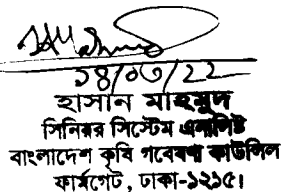 ১৪/০৩/২২
হাসান মাহমুদ
সিনিয়র সিস্টেম এনালিষ্ট
বাংলাদেশ কৃষি গবেষণা কাউন্সিল
ফার্মগেট, ঢাকা-১২১৫।